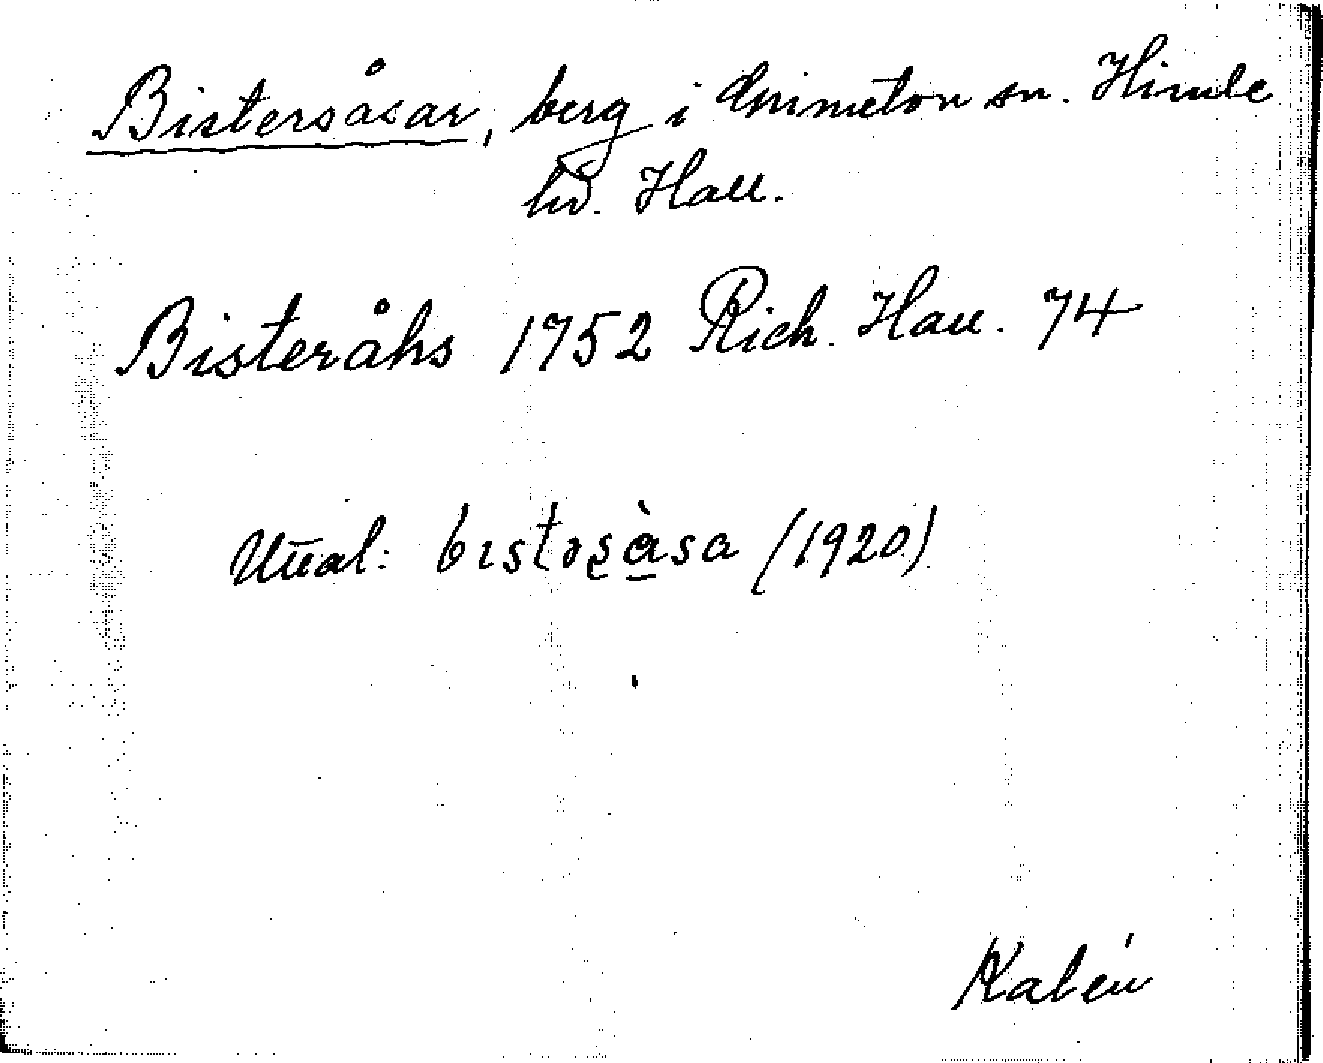 Bistersåsar, berg i Grimeton sn. Himle
hd. Hall.
Bisteråhs 1752 Rich. Hall. 74
Uttal: bıstəʂàsa (1920)
Kalén